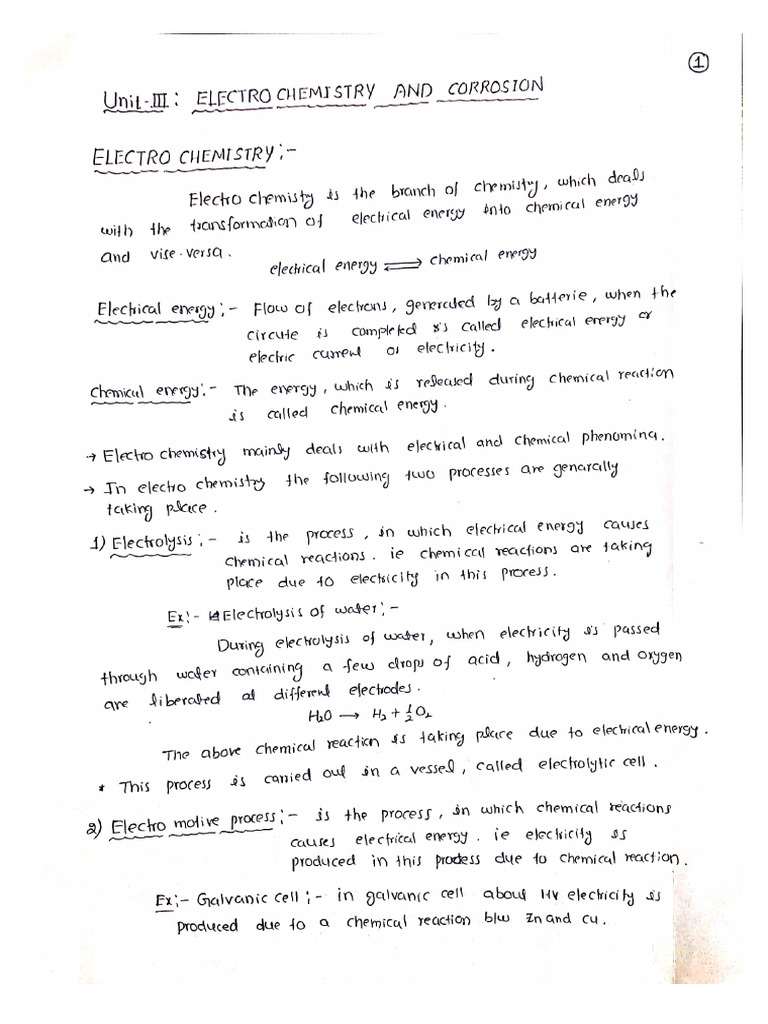 1
Unit-III: ELECTRO CHEMISTRY AND CORROSION
ELECTRO CHEMISTRY:-
Electro chemisty is the branch of chemistry, which deals
with the transformation of electrical energy into chemical energy
and vise-versa.
electrical energy ⇌ chemical energy
Electrical energy:- Flow of electrons, generated by a batterie, when the
circute is completed is called electrical energy or
electric current or electricity.
Chemical energy:- The energy, which is released during chemical reaction
is called chemical energy.
→ Electro chemistry mainly deals with electrical and chemical phenomina.
→ In electro chemistry the following two processes are genarally
taking place.
1) Electrolysis:- is the process, in which electrical energy causes
chemical reactions. ie chemical reactions are taking
place due to electricity in this process.
Ex:- Electrolysis of water:-
During electrolysis of water, when electricity is passed
through water containing a few drops of acid, hydrogen and oxygen
are liberated at different electrodes.
H₂O → H₂ + ½O₂
The above chemical reaction is taking place due to electrical energy.
* This process is carried out in a vessel, called electrolytic cell.
2) Electro motive process:- is the process, in which chemical reactions
causes electrical energy. ie electricity is
produced in this process due to chemical reaction.
Ex:- Galvanic cell:- in galvanic cell about 1.1V electricity is
produced due to a chemical reaction b/w Zn and Cu.